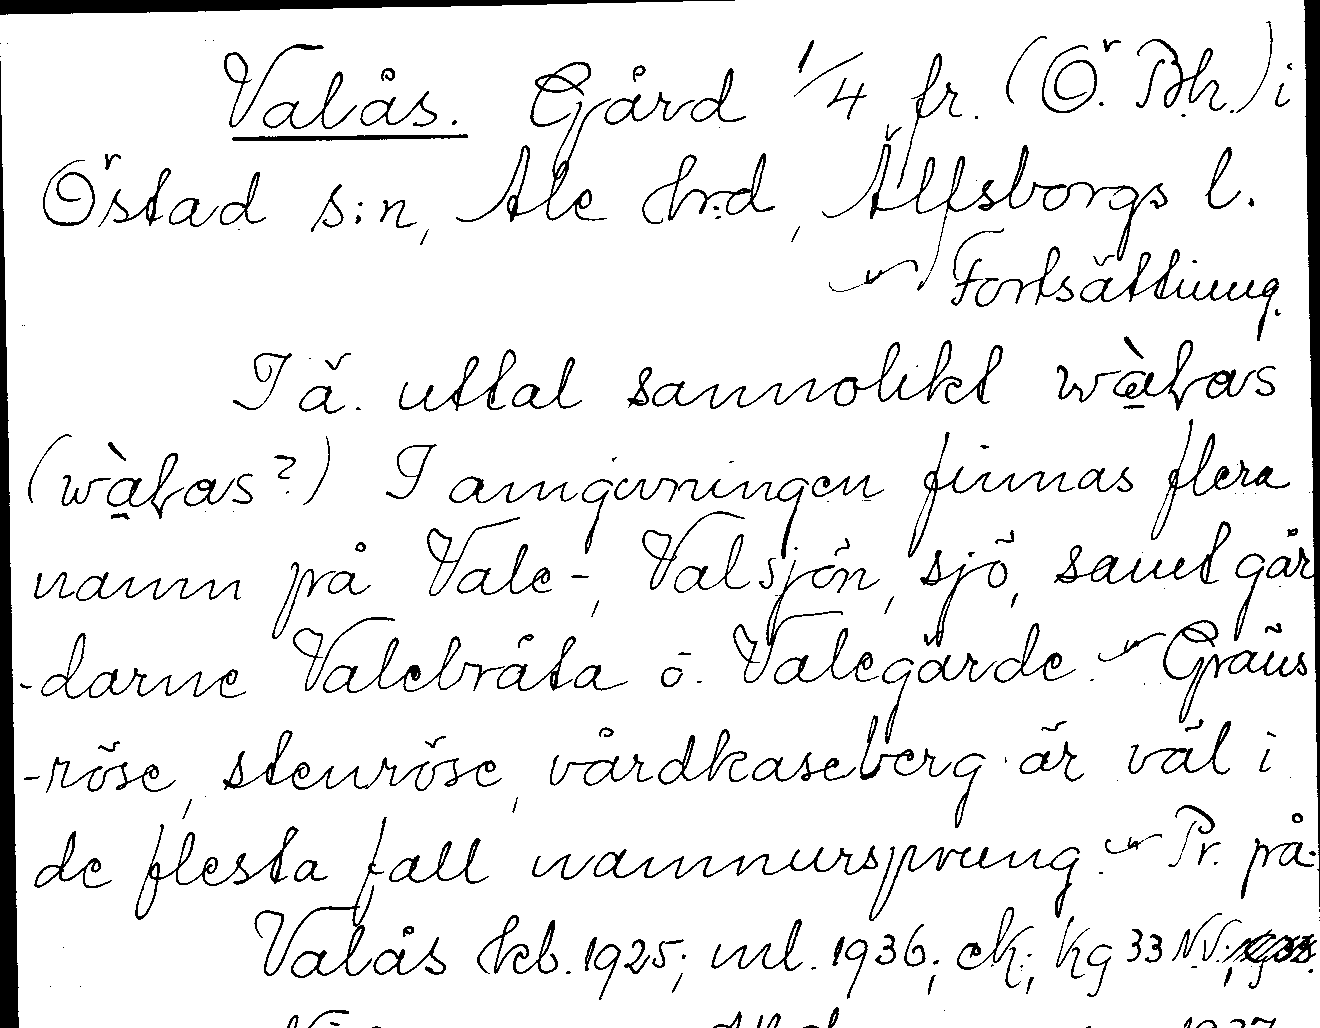 Valås. Gård 1/4 fr. (Ö. Bh.) i
Östad s:n, Ale hrd, Älfsborgs l.
Fortsättning.
I ä. uttal sannolikt wàłas
(wàłas?) I omgivningen finnas flera
namn på Vale-, Valsjön, sjö, samt går
-darne Valebråta o. Valegärde. Gräns
-röse, stenröse, vårdkaseberg är väl i
de flesta fall namnursprung. Pr. på
Valås kb. 1925; ml. 1936; ek; kg 33 N.V.;